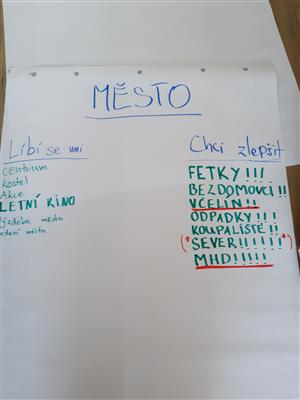 MĚSTO
Líbí se mi
centrum
kostel
Akce
LETNÍ KINO
výzdoba města
města
Chci zlepšit
FETKY!!!
BEZDOMOVCI!!
VČELÍN!!
ODPADKY!!!
KOUPALIŠTĚ!!
(*SEVER!!!!!!*)
MHD!!!!!